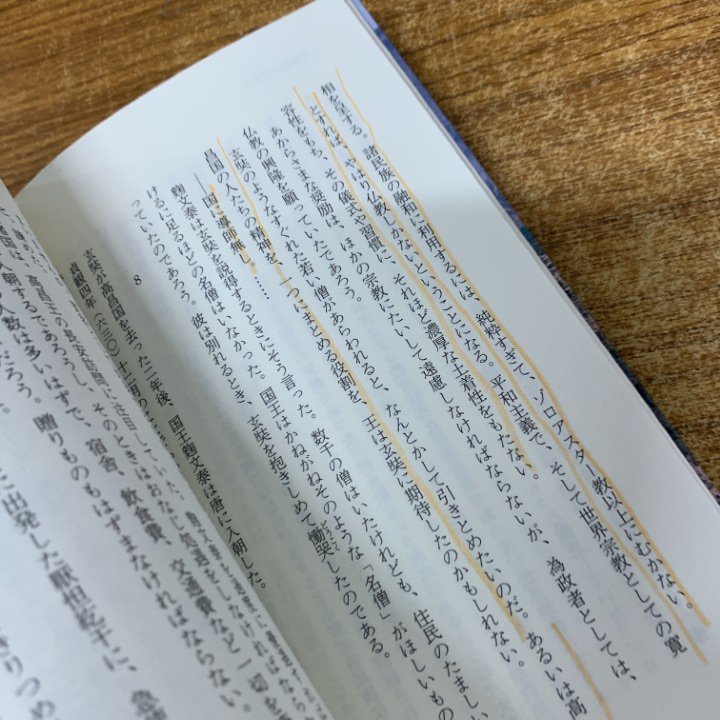 相を呈する。諸民族の融和に利用するには、純粋すぎて、ゾロアスター教以上にむかない。
とすれば、やはり仏教しかないということになる。平和主義で、そして世界宗教としての寛
容性をもち、その儀式や習慣に、それほど濃厚な土着性をもたない。
あからさまな奨励は、ほかの宗教にたいして遠慮しなければならないが、為政者としては、
仏教の興隆を願っていたであろう。
玄奘のようなすぐれた若い僧があらわれると、なんとかして引きとめたいのだ。あるいは高
昌国の人たちの精神を、一つにまとめる役割を、王は玄奘に期待したのかもしれない。
――国に導師無し。……
麴文泰は玄奘を説得するときにそう言った。数千の僧はいたけれども、住民のたましい
けるに足るほどの名僧はいなかった。国王はかねがねそのような「名僧」がほしいもの
っていたのであろう。彼は別れるとき、玄奘を抱きしめて慟哭したのである。
8
玄奘が高昌国を去った二年後、国王麴文泰は唐に入朝した。
貞観四年（六三〇）十二月
朝するであろうし、そのときはおなじ処遇をしなければ
人数は多いはずで、宿舎、飲食費、交通費など一切を
だろう。贈りものもはずまなければならない。
に出発した厭怛紇干に、急